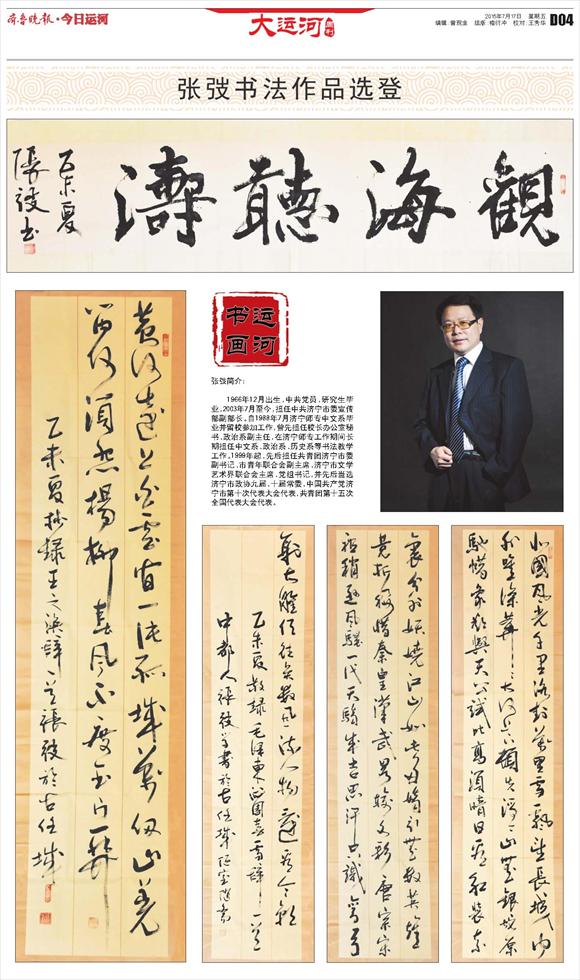 齐鲁晚报·今日运河
大运河
周刊
2015年7月17日 星期五
编辑:曾现金 组版:楮衍冲 校对:王秀华
D04
张弢书法作品选登
觀海聽濤
乙未夏
張弢书
黄河遠上白雲间一片孤城萬仞山羌
笛何須怨楊柳春風不度玉门關
乙未夏抄録王之渙詩一首張弢於古任城
运河
书画
张弢简介:
1966年12月出生,中共党员,研究生毕
业。2003年7月至今,担任中共济宁市委宣传
部副部长。自1988年7月济宁师专中文系毕
业并留校参加工作,曾先担任校长办公室秘
书、政治系副主任,在济宁师专工作期间长
期担任中文系、政治系、历史系等书法教学
工作。1999年起,先后担任共青团济宁市委
副书记、市青年联合会副主席,济宁市文学
艺术界联合会主席、党组书记,并先后当选
济宁市政协九届、十届常委,中国共产党济
宁市第十次代表大会代表、共青团第十五次
全国代表大会代表。
北國風光千里冰封萬里雪飘望長城内
外唯餘莽莽大河上下頓失滔滔山舞銀蛇原
馳蠟象欲與天公試比高須晴日看紅装素
裹分外妖嬈江山如此多嬌引無數英雄
竞折腰惜秦皇漢武略输文彩唐宗宋
祖稍逊風騷一代天驕成吉思汗只識彎弓
射大雕俱往矣數風流人物还看今朝
乙未夏敬録毛澤東沁園春雪詩一首
中都人張弢学書於古任城